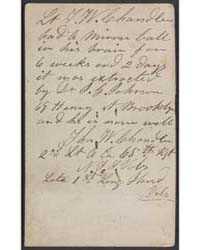 Lt J. W. Chandler
had a Minnie ball
in his brain for
6 weeks and 2 days
it was extracted
by Dr.
Henry St Brooklyn
and he is now well
Chandler
2nd Lt Co 65th Regt
N.Y. Vols
Late 1st Long Island
Vols